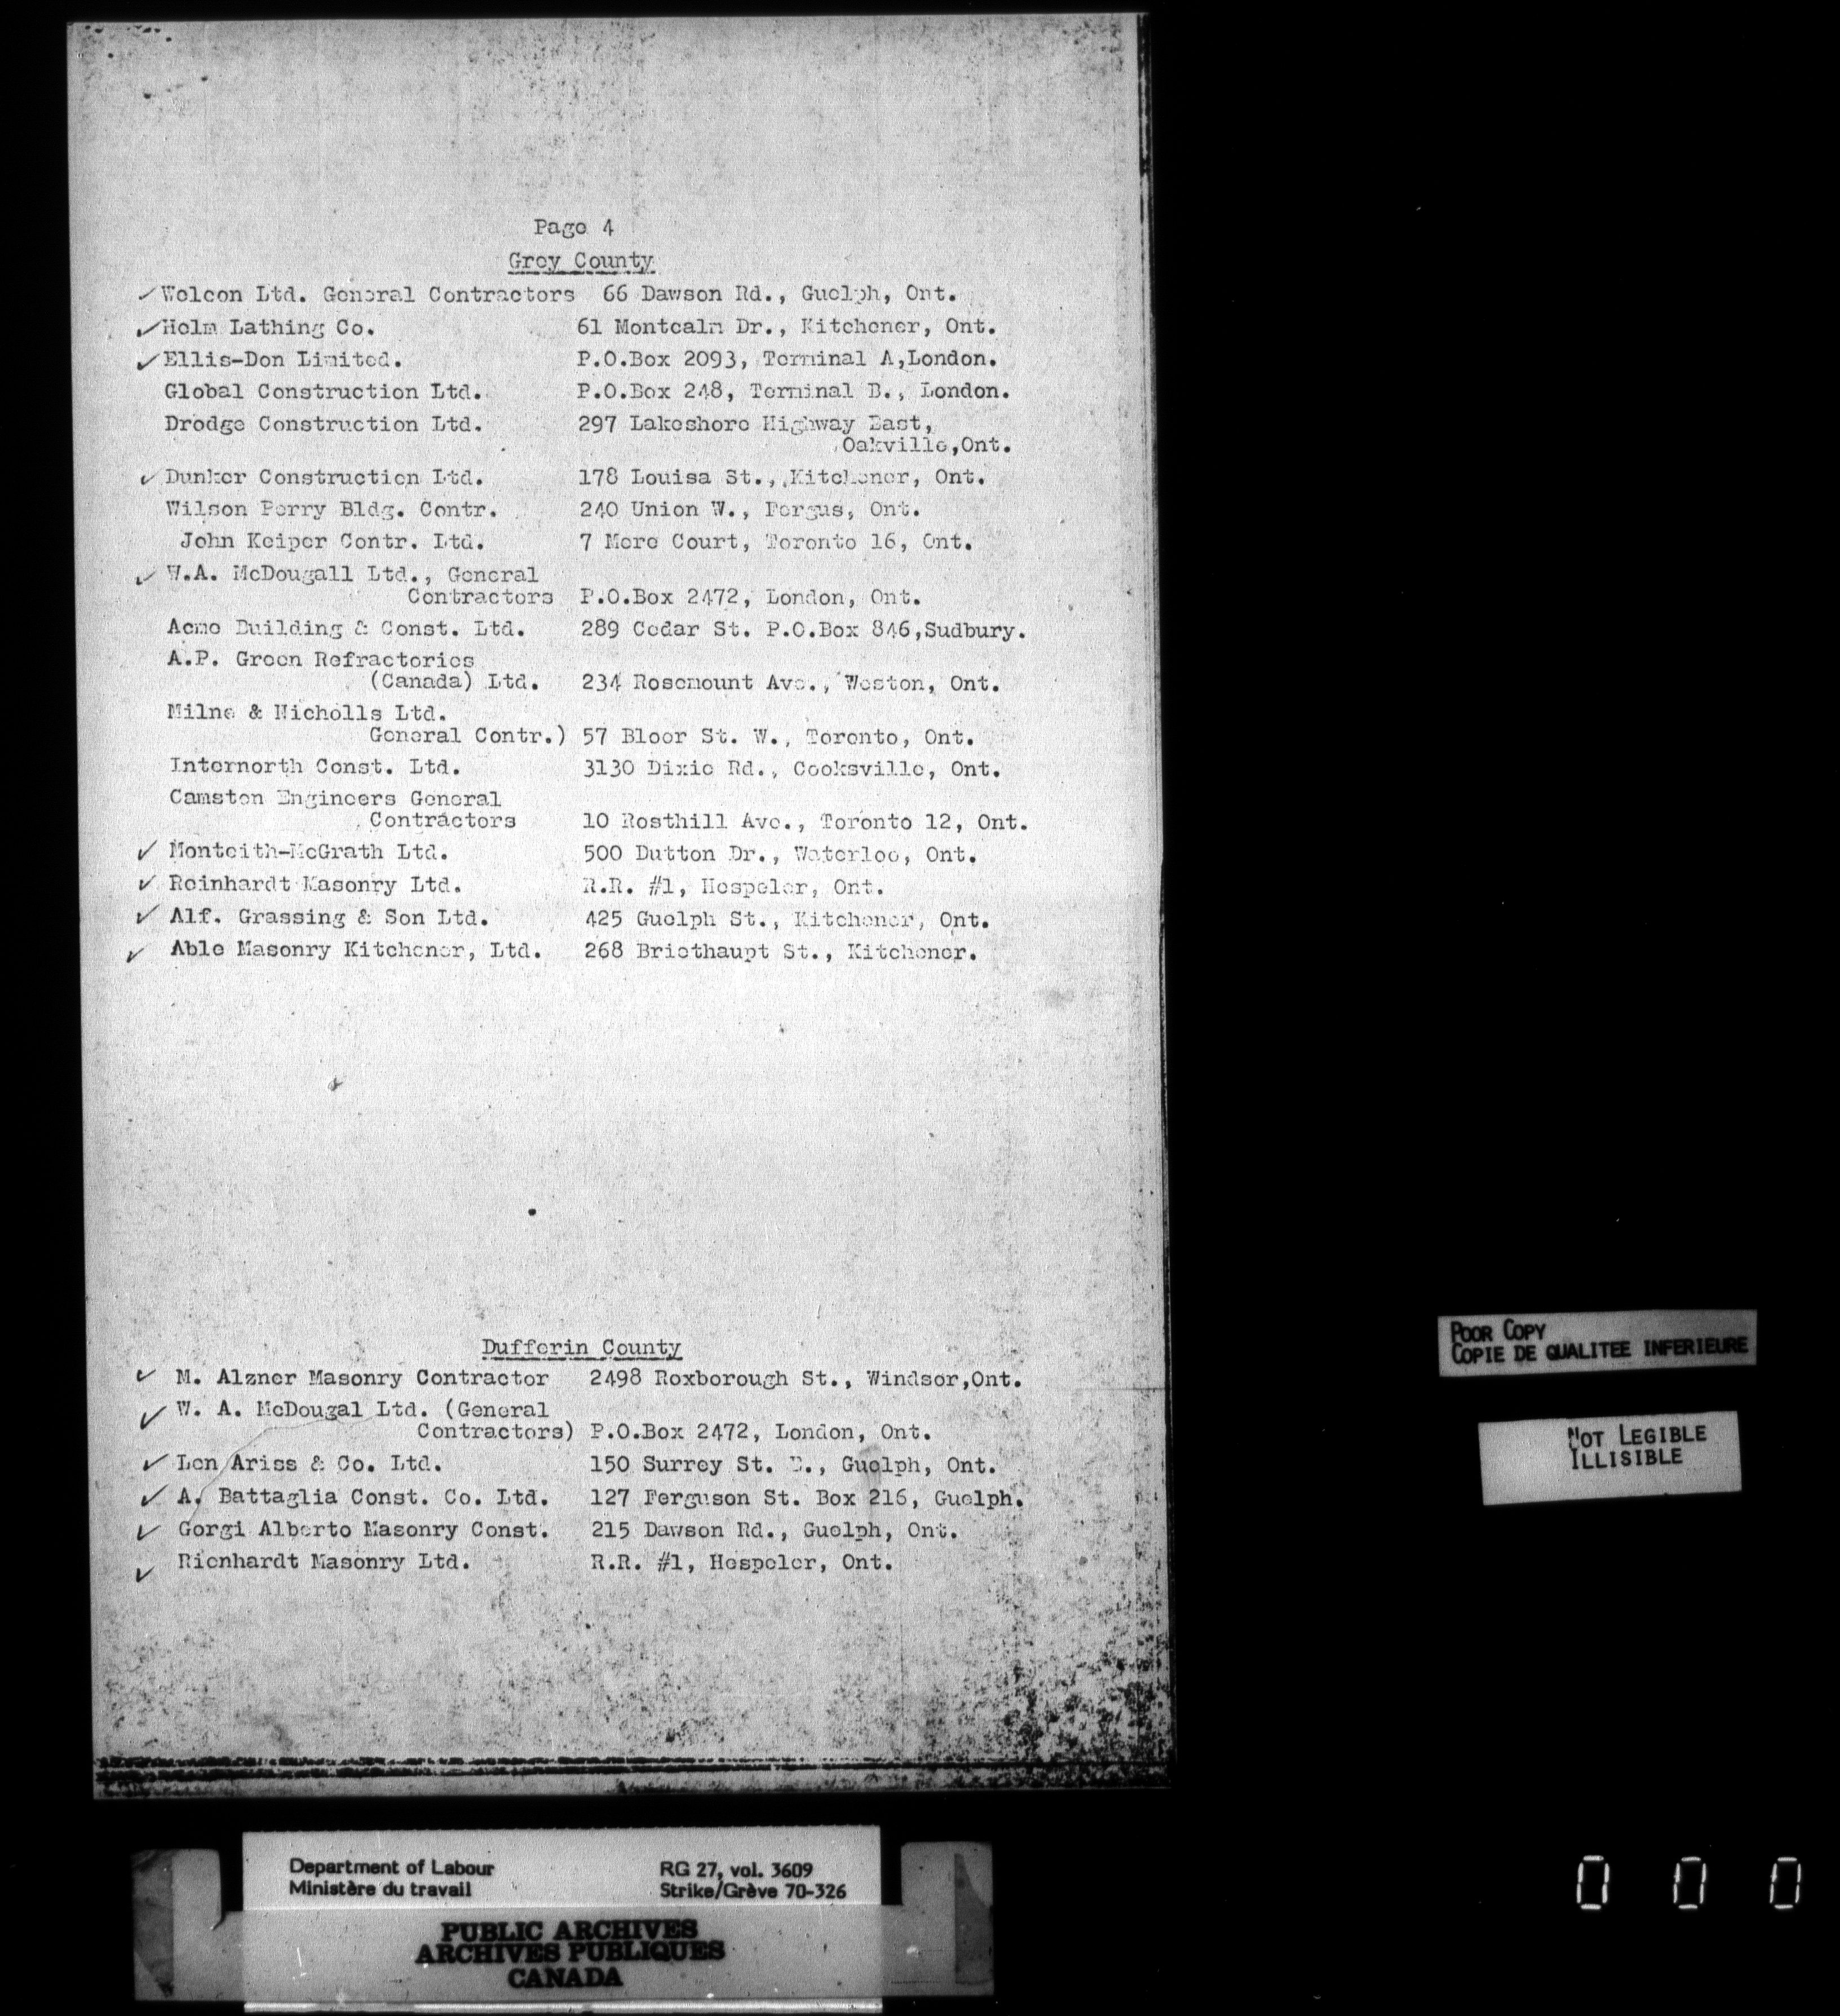 Page 4
Grey County
✓ Welcon Ltd. General Contractors 66 Dawson Rd., Guelph, Ont.
✓ Helm Lathing Co. 61 Montcalm Dr., Kitchener, Ont.
✓ Ellis-Don Limited. P.O.Box 2093, Terminal A,London.
Global Construction Ltd. P.O.Box 248, Terminal B., London.
Drodge Construction Ltd. 297 Lakeshore Highway East,
Oakville,Ont.
✓ Dunker Construction Ltd. 178 Louisa St., Kitchener, Ont.
Wilson Perry Bldg. Contr. 240 Union W., Fergus, Ont.
John Keiper Contr. Ltd. 7 Mere Court, Toronto 16, Ont.
✓ W.A. McDougall Ltd., General
Contractors P.O.Box 2472, London, Ont.
Acme Building & Const. Ltd. 289 Cedar St. P.O.Box 846,Sudbury.
A.P. Green Refractories
(Canada) Ltd. 234 Rosemount Ave., Weston, Ont.
Milne & Nicholls Ltd.
General Contr.) 57 Bloor St. W., Toronto, Ont.
Internorth Const. Ltd. 3130 Dixie Rd., Cooksville, Ont.
Camston Engineers General
Contractors 10 Rosthill Ave., Toronto 12, Ont.
✓ Monteith-McGrath Ltd. 500 Dutton Dr., Waterloo, Ont.
✓ Reinhardt Masonry Ltd. R.R. #1, Hespeler, Ont.
✓ Alf. Grassing & Son Ltd. 425 Guelph St., Kitchener, Ont.
✓ Able Masonry Kitchener, Ltd. 268 Briethaupt St., Kitchener.
Dufferin County
✓ M. Alzner Masonry Contractor 2498 Roxborough St., Windsor,Ont.
✓ W. A. McDougal Ltd. (General
Contractors) P.O.Box 2472, London, Ont.
✓ Len Ariss & Co. Ltd. 150 Surrey St. E., Guelph, Ont.
✓ A. Battaglia Const. Co. Ltd. 127 Ferguson St. Box 216, Guelph.
✓ Gorgi Alberto Masonry Const. 215 Dawson Rd., Guelph, Ont.
✓ Rienhardt Masonry Ltd. R.R. #1, Hespeler, Ont.
POOR COPY
COPIE DE QUALITEE INFERIEURE
NOT LEGIBLE
ILLISIBLE
Department of Labour RG 27, vol. 3609
Ministère du travail Strike/Grève 70-326
PUBLIC ARCHIVES
ARCHIVES PUBLIQUES
CANADA
0 0 0